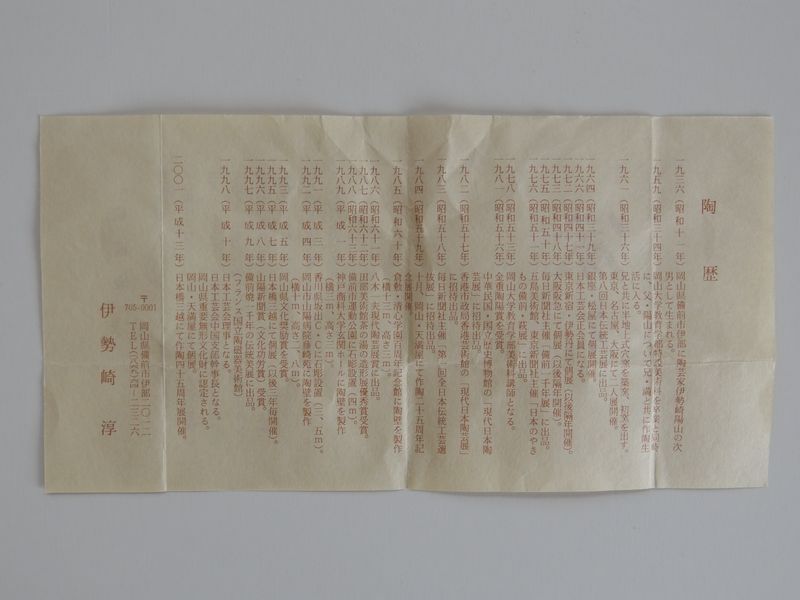 陶歴
一九三六（昭和十一年）岡山県備前市伊部に陶芸家伊勢﨑陽山の次
男として生まれる。
一九五九（昭和三十四年）岡山大学教育学部特設美術科を卒業と同時
に、父、陽山について兄・満と共に作陶生
活に入る。
一九六一（昭和三十六年）兄と共に半地上式穴窯を築窯、初窯を出す。
東京、名古屋、大阪にて二人展開催。
第八回日本伝統工芸展に出品。
一九六四（昭和三十九年）銀座・松屋にて個展開催。
日本工芸会正会員になる。
一九七二（昭和四十七年）東京新宿・伊勢丹にて個展（以後隔年開催）。
一九七三（昭和四十八年）大阪阪急にて個展（以後隔年開催）。
一九七五（昭和五十年）毎日新聞社主催「備前一千年展」に出品。
一九七六（昭和五十一年）五島美術館と東京新聞社主催「日本のやき
もの備前・萩展」に出品。
一九七八（昭和五十三年）岡山大学教育学部美術科講師となる。
一九八一（昭和五十六年）全重陶陽賞を受賞。
中華民国・国立歴史博物館の「現代日本陶
芸展」に招待出品。
一九八二（昭和五十七年）香港市政局香港芸術館の「現代日本陶芸展」
に招待出品。
一九八三（昭和五十八年）毎日新聞社主催「第一回全日本伝統工芸選
抜展」に招待出品。
一九八四（昭和五十九年）十月岡山・天満屋にて作陶二十五周年記
念展開催。
一九八五（昭和六十年）倉敷・清心学園百周年記念館に陶壁を製作
（横十三m、高さ三m）。
一九八六（昭和六十一年）八木一夫現代陶芸展賞に出品。
一九八七（昭和六十二年）田部美術館茶の湯の造形展優秀賞受賞。
一九八八（昭和六十三年）備前市運動公園に石彫設置（四m）。
一九八九（平成一年）神戸商科大学玄関ホールに陶壁を製作
（横三m、高さ二m）。
一九九一（平成三年）香川県坂出C・Cに石彫設置（三、五m）。
一九九二（平成四年）岡山市山陽病院雄崎苑に陶壁を製作
（横十m、高さ一、八m）。
一九九三（平成五年）岡山県文化奨励賞を受賞。
一九九五（平成七年）日本橋三越にて個展（以後三年毎開催）。
一九九六（平成八年）山陽新聞賞（文化功労賞）受賞。
一九九七（平成九年）備前焼一千年の伝統美展に出品。
（フランス国立陶磁器美術館）
一九九八（平成十年）日本工芸会理事になる。
日本工芸会中国支部幹事長となる。
岡山県重要無形文化財に認定される。
岡山・天満屋にて個展。
二〇〇一（平成十三年）日本橋三越にて作陶四十五周年展開催。
〒705-0001
岡山県備前市伊部
伊勢﨑 淳